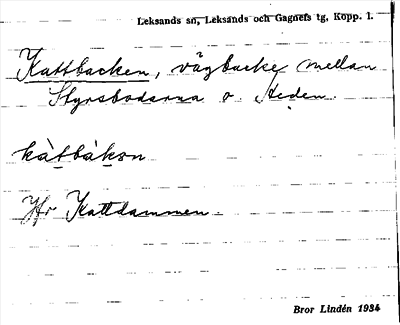 Leksands sn, Leksands och Gagnefs tg, Kopp. l.
Kattbacken, vägbacke mellan
Styrsbodarna o Heden.
kàtbàksn
Jfr Kattdammen.
Bror Lindén 1934